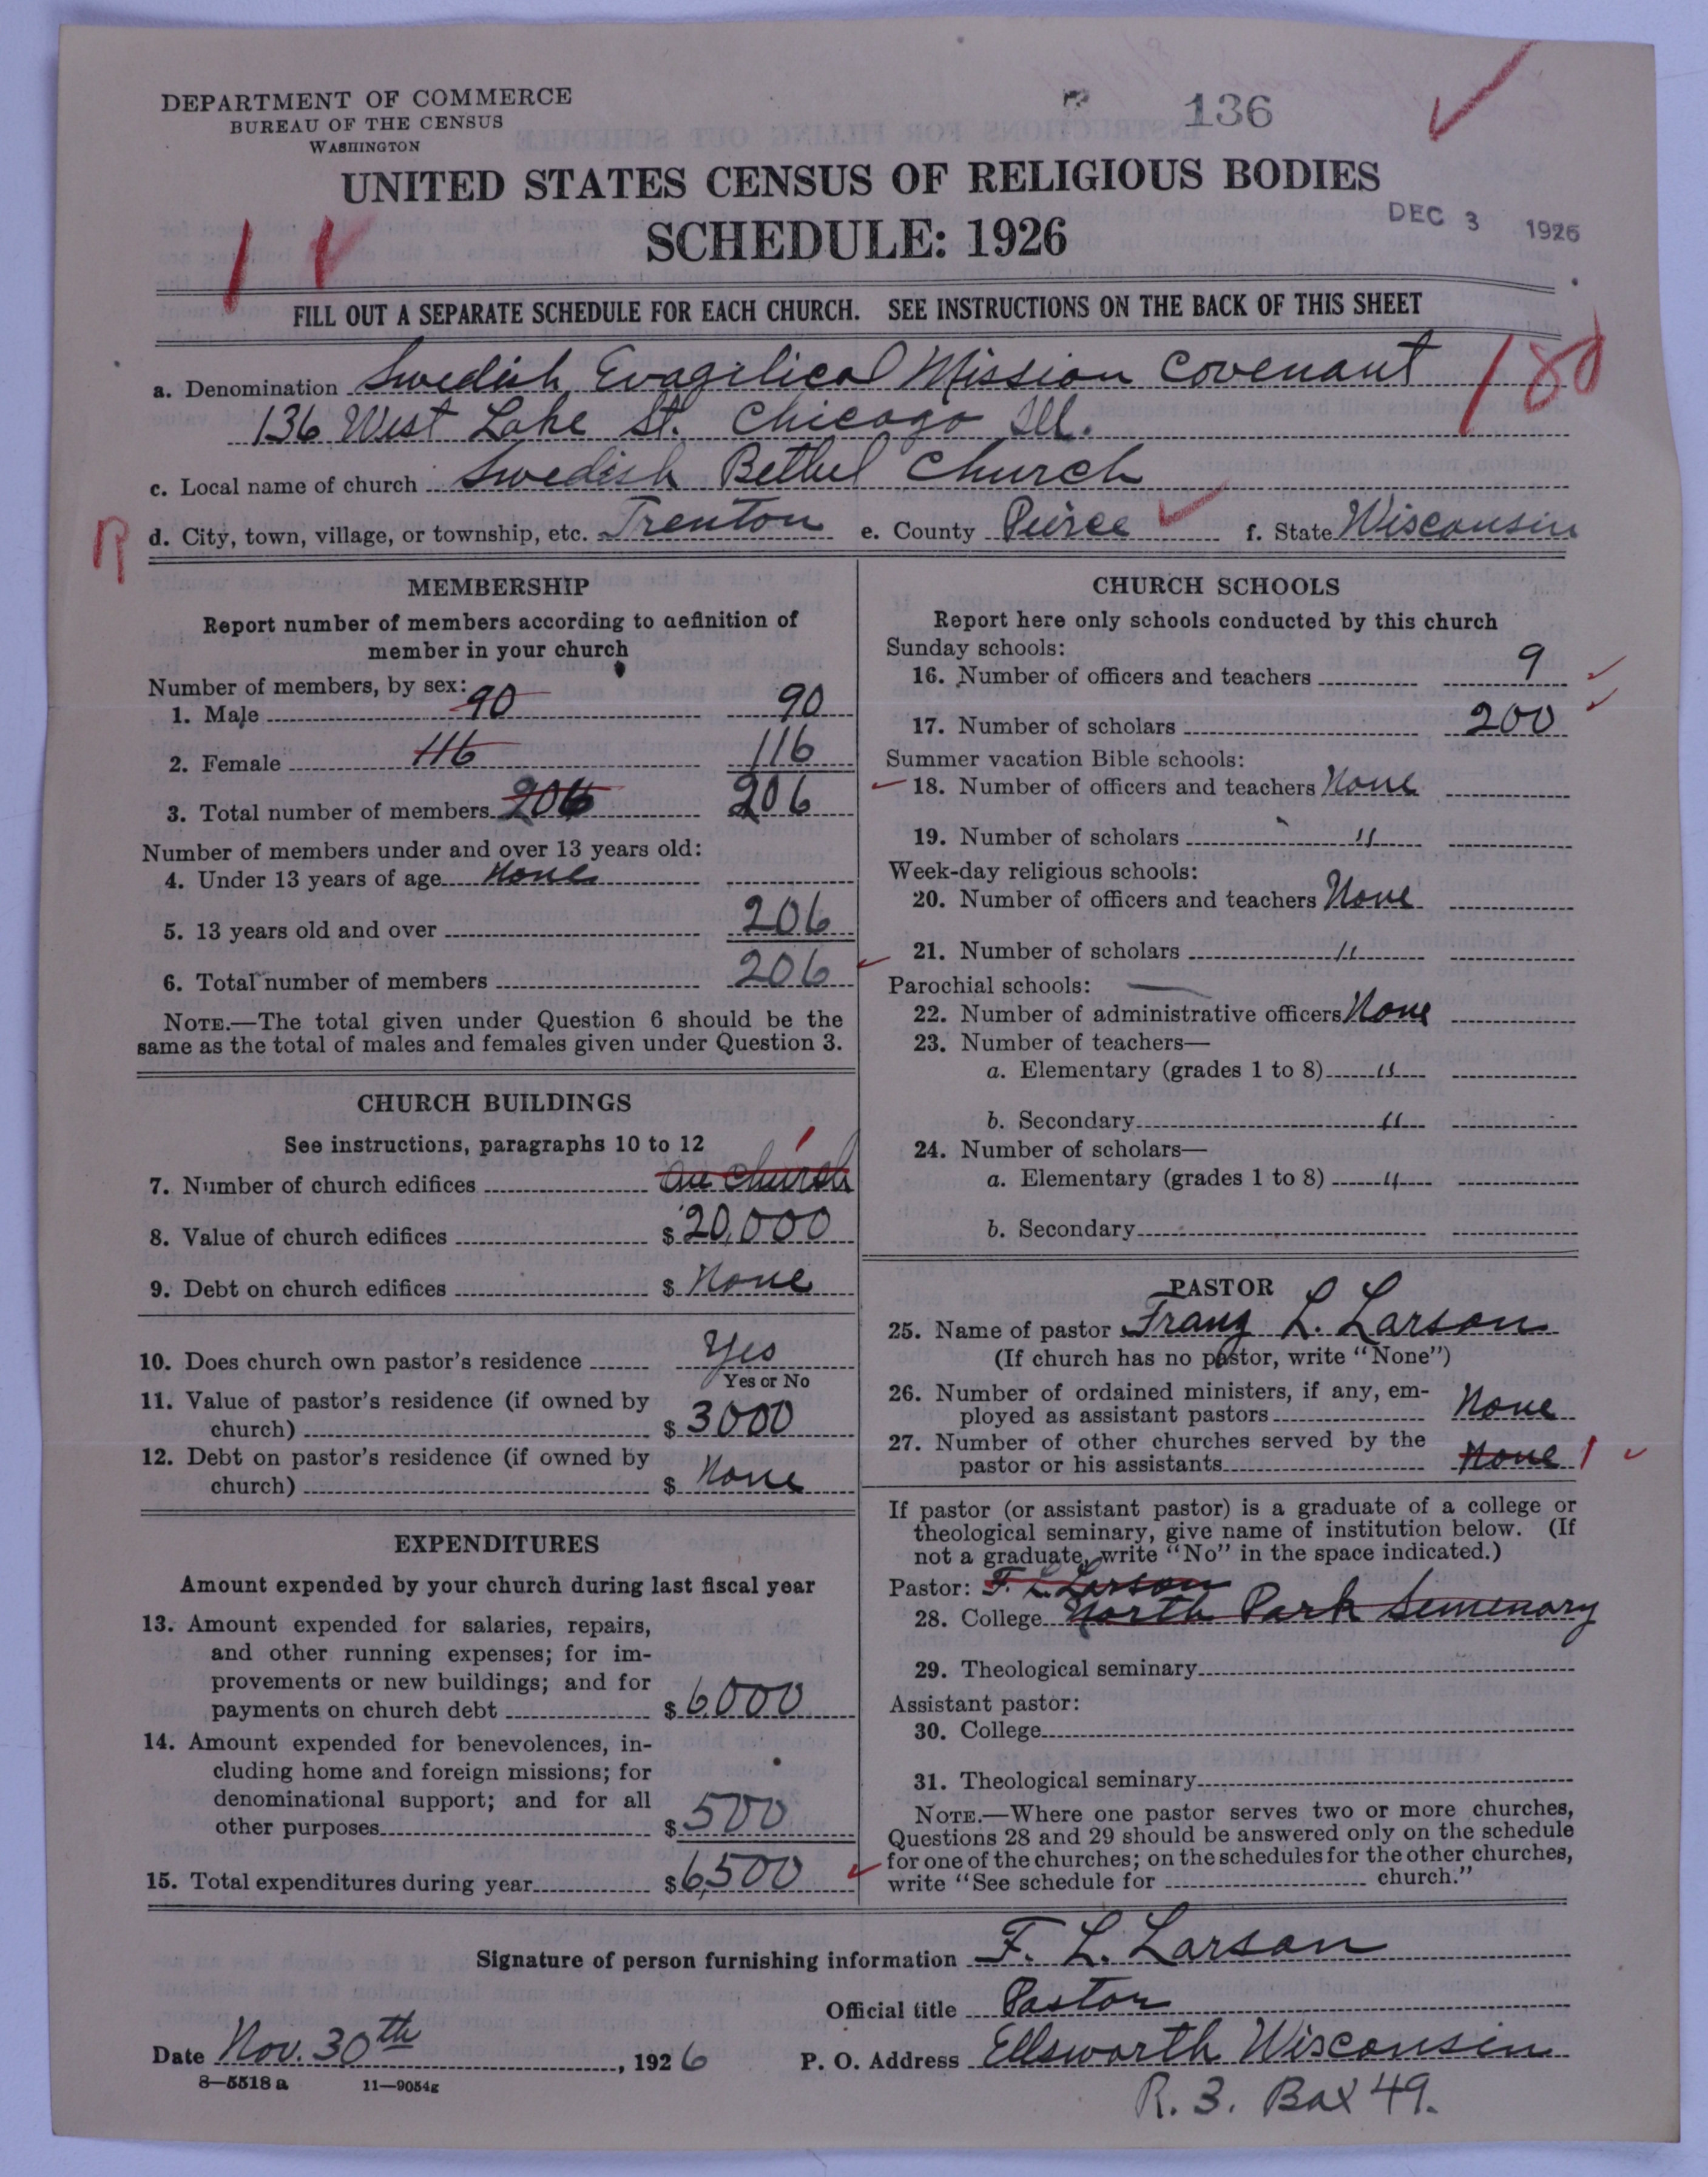 DEPARTMENT OF COMMERCE
BUREAU OF THE CENSUS
WASHINGTON
136
UNITED STATES CENSUS OF RELIGIOUS BODIES
SCHEDULE: 1926
DEC 3 1926
FILL OUT A SEPARATE SCHEDULE FOR EACH CHURCH. SEE INSTRUCTIONS ON THE BACK OF THIS SHEET
a. Denomination Swedish Evagelical Mission Covenant
180
136 West Lake St. Chicago Ill.
c. Local name of church Swedish Bethel Church
R
d. City, town, village, or township, etc. Trenton e. County Peirce f. State Wisconsin
MEMBERSHIP
Report number of members according to definition of
member in your church
Number of members, by sex:
1. Male 90 90
2. Female 116 116
3. Total number of members 206 206
Number of members under and over 13 years old:
4. Under 13 years of age None
5. 13 years old and over 206
6. Total number of members 206
NOTE.—The total given under Question 6 should be the
same as the total of males and females given under Question 3.
CHURCH BUILDINGS
See instructions, paragraphs 10 to 12
1
7. Number of church edifices an church
8. Value of church edifices $ 20,000
9. Debt on church edifices $ None
10. Does church own pastor's residence Yes
Yes or No
11. Value of pastor's residence (if owned by
church) $ 3000
12. Debt on pastor's residence (if owned by
church) $ None
EXPENDITURES
Amount expended by your church during last fiscal year
13. Amount expended for salaries, repairs,
and other running expenses; for im-
provements or new buildings; and for
payments on church debt $ 6000
14. Amount expended for benevolences, in-
cluding home and foreign missions; for
denominational support; and for all
other purposes $ 500
15. Total expenditures during year $ 6,500
CHURCH SCHOOLS
Report here only schools conducted by this church
Sunday schools:
16. Number of officers and teachers 9
17. Number of scholars 200
Summer vacation Bible schools:
18. Number of officers and teachers None
19. Number of scholars "
Week-day religious schools:
20. Number of officers and teachers None
21. Number of scholars "
Parochial schools:
22. Number of administrative officers None
23. Number of teachers—
a. Elementary (grades 1 to 8) "
b. Secondary "
24. Number of scholars—
a. Elementary (grades 1 to 8) "
b. Secondary
PASTOR
25. Name of pastor Franz L. Larson
(If church has no pastor, write "None")
26. Number of ordained ministers, if any, em-
ployed as assistant pastors None
27. Number of other churches served by the
pastor or his assistants None 1
If pastor (or assistant pastor) is a graduate of a college or
theological seminary, give name of institution below. (If
not a graduate, write "No" in the space indicated.)
Pastor: F. L. Larson
28. College North Park Semenary
29. Theological seminary
Assistant pastor:
30. College
31. Theological seminary
NOTE.—Where one pastor serves two or more churches,
Questions 28 and 29 should be answered only on the schedule
for one of the churches; on the schedules for the other churches,
write "See schedule for church."
Signature of person furnishing information F. L. Larson
Official title Pastor
Date Nov. 30th, 1926 P. O. Address Ellsworth Wisconsin
8—5518 a 11—9054g
R. 3. Box 49.